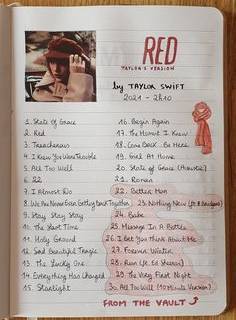 RED
TAYLOR'S VERSION
by TAYLOR SWIFT
2021 - 2h10
1. State Of Grace
2. Red
3. Treacherous
4. I Knew You Were Trouble
5. All Too Well
6. 22
7. I Almost Do
8. We Are Never Ever Getting Back Together
9. Stay Stay Stay
10. The Last Time
11. Holy Ground
12. Sad Beautiful Tragic
13. The Lucky One
14. Everything Has Changed
15. Starlight
16. Begin Again
17. The Moment I Knew
18. Come Back... Be Here
19. Girl At Home
20. State Of Grace (Acoustic)
21. Ronan
22. Better Man
23. Nothing New (ft. P. Bridgers)
24. Babe
25. Message In A Bottle
26. I Bet You Think About Me
27. Forever Winter
28. Run (ft. Ed Sheeran)
29. The Very First Night
30. All Too Well (10 Minute Version)
FROM THE VAULT